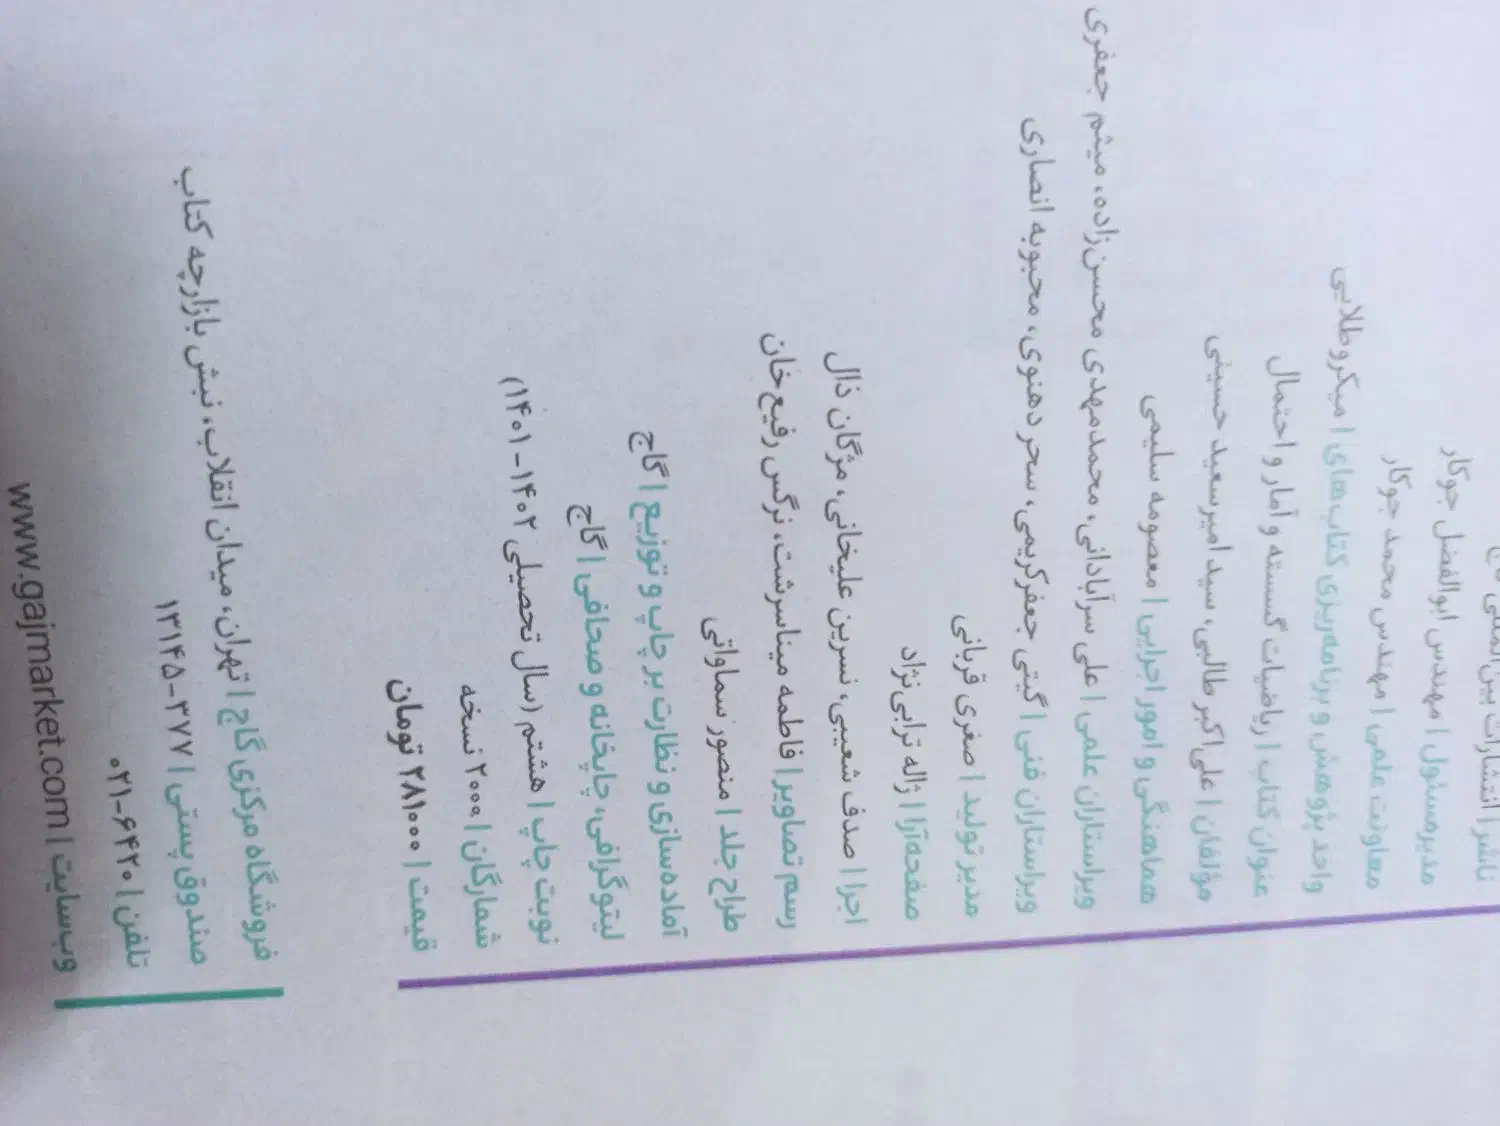 ناشر | انتشارات بین‌المللی گاج
مدیرمسئول | مهندس ابوالفضل جوکار
معاونت علمی | مهندس محمد جوکار
واحد پژوهش و برنامه‌ریزی کتاب‌های | میکرو طلایی
عنوان کتاب | ریاضیات گسسته و آمار و احتمال
مؤلفان | علی‌اکبر طالبی، سید امیرسعید حسینی
هماهنگی و امور اجرایی | معصومه سلیمی
ویراستاران علمی | علی سرآبادانی، محمدمهدی محسن‌زاده، میثم جعفری
ویراستاران فنی | گیتی جعفرکریمی، سحر دهنوی، محبوبه انصاری
مدیر تولید | صغری قربانی
صفحه‌آرا | ژاله ترابی‌نژاد
اجرا | صدف شعیبی، نسرین علیخانی، مژگان ذال
رسم تصاویر | فاطمه میناسرشت، نرگس رفیع‌خان
طراح جلد | منصور سماواتی
آماده‌سازی و نظارت بر چاپ و توزیع | گاج
لیتوگرافی، چاپخانه و صحافی | گاج
نوبت چاپ | هشتم (سال تحصیلی ۱۴۰۲-۱۴۰۱)
شمارگان | ۲۰۰۰ نسخه
قیمت | ۲۸۱۰۰۰ تومان
فروشگاه مرکزی گاج | تهران، میدان انقلاب، نبش بازارچه کتاب
صندوق پستی | ۳۷۷-۱۳۱۴۵
تلفن | ۰۲۱-۶۴۲۰
وب‌سایت | www.gajmarket.com